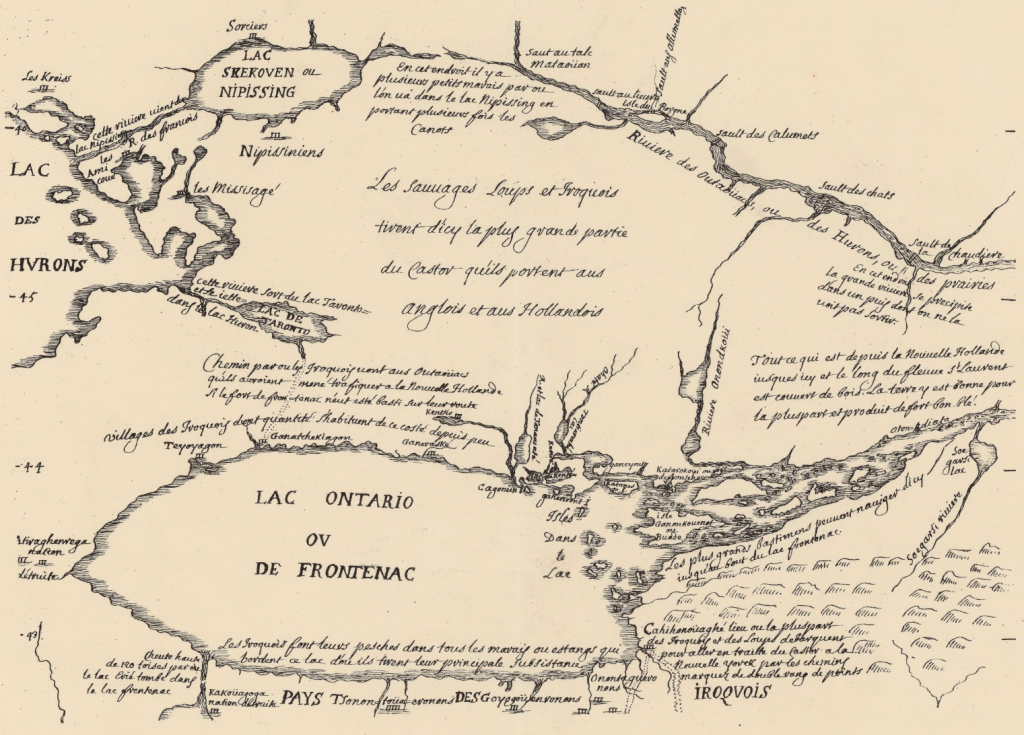 Sorciers
LAC
SKEKOVEN ou
NIPISSING
Les Kreiss
46
cette riviere vient du
lac Nipissing
R. des francois
les
Ami
coué
Nipissiniens
En cet endroit il y a
plusieurs petits marais par ou
lon va dans le lac Nipissing en
portant plusieurs fois les
Canots
Saut au talc
Mataouan
sault aux allumettes
sault au lieure
isle du
sault des Calumets
Riviere des Outaouacs, ou des Hurons, ou des prairies
Sault des chats
Sault de la Chaudiere
En cet endroit
la grande riviere se precipite
dans un puis dont on ne la
voit pas sortir.
LAC
DES
HVRONS
les Missisagé
Les sauvages Loups et Iroquois
tirent d'icy la plus grande partie
du Castor quils portent aus
anglois et aus Hollandois
-45
cette riviere sort du lac Taronto
et se iette
dans le lac Huron
LAC DE
TARONTO
Chemin par ou les Iroquois vont aus Outaouacs
quils auroient mené trafiquer a la Nouvelle Hollande
si le fort de frontenac neust esté basti sur leur route
Villages des Iroquois dont quantité shabituent de ce costé depuis peu
Teyoyagon
Ganatchekiagon
Ganeraske
Kentsio
Riviere Onondkouii
Tout ce qui est depuis la Nouvelle Hollande
iusques icy et le long du fleuve St Laurent
est couvert de bois. La terre y est bonne pour
la pluspart et produit de fort bon blé.
-44
LAC ONTARIO
OV
DE FRONTENAC
Isles
Dans
le
Lac
isle
Ganounkouenot
Buade
Soegasti
lac
Soegasti riviere
Les plus grands bastimens peuvent naviger d'icy
iusqu'au bout du lac frontenac
nation
détruite
-43
Cheute haute
de 120 toises par ou
le lac Erié tombe dans
le lac frontenac
Kakouagoga
nation detruite
Les Iroquois font leurs pesches dans tous les marais ou estangs qui
bordent ce lac dont ils tirent leur principale subsistance
Cahihonoüaghé lieu ou la pluspart
des Iroquois et des Loups debarquent
pour aller en traite du Castor a la
Nouvelle Yorck par les chemins
marquez de double rang de points
PAYS Tsonontouaeronons DES Goyogouenronons
Onontaguero
nons
IROQVOIS